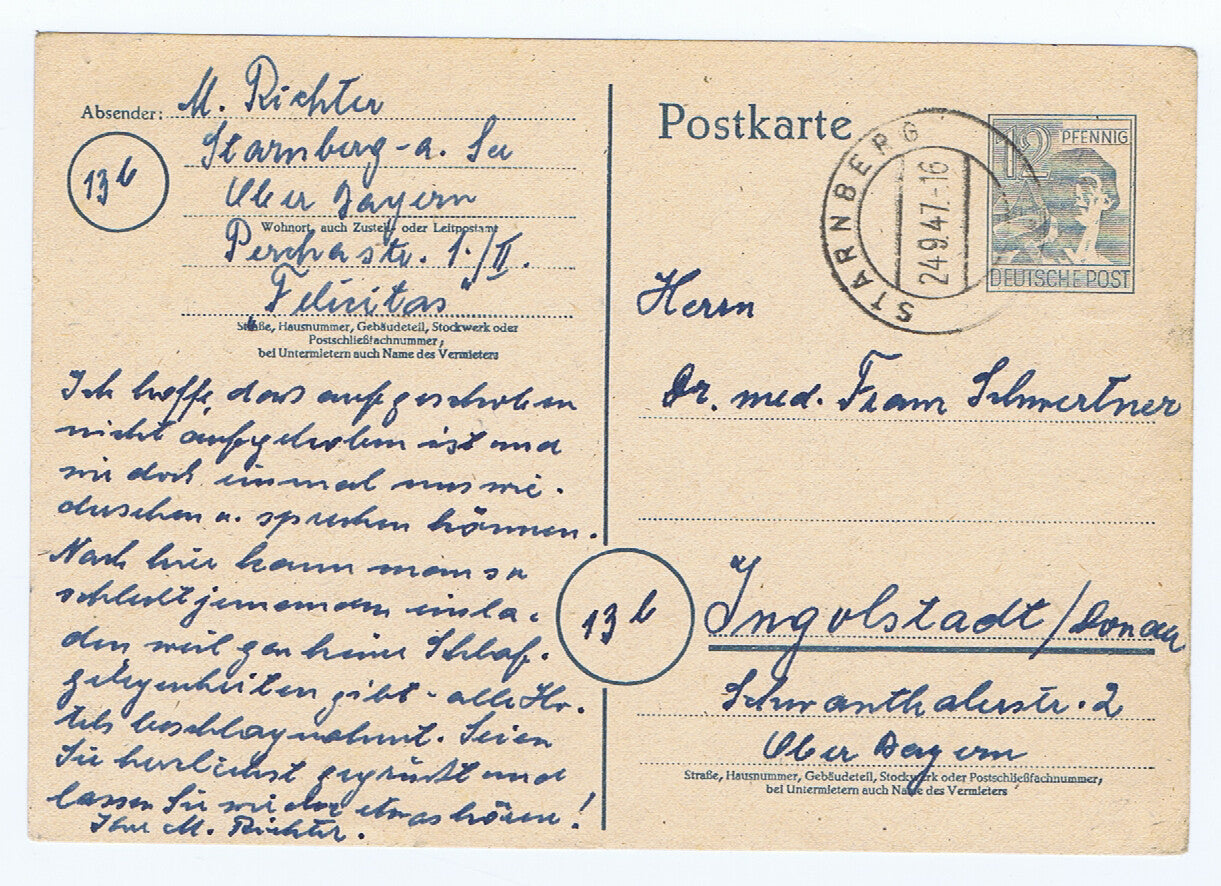 Absender: M. Richter
Starnberg - a. See
Ober Bayern
Wohnort, auch Zustell- oder Leitpostamt
Perchastr. 1./II.
"Felicitas"
Straße, Hausnummer, Gebäudeteil, Stockwerk oder
Postschließfachnummer,
bei Untermietern auch Name des Vermieters
13b
Ich hoffe, dass aufgeschoben
nicht aufgehoben ist und
wir doch einmal uns wie-
dersehen u. sprechen können.
Nach hier kann man so
schlecht jemanden einla-
den weil gar keine Schlaf-
gelegenheiten gibt - alle Ho-
tels beschlagnahmt. Seien
Sie herzlichst gegrüsst und
lassen Sie wieder etwas hören!
Ihre M. Richter.
Postkarte
STARNBERG
24.9.47.-16
12 PFENNIG
DEUTSCHE POST
Herrn
Dr. med. Franz Schwertner
13b
Ingolstadt/Donau
Schwanthalerstr. 2
Ober Bayern
Straße, Hausnummer, Gebäudeteil, Stockwerk oder Postschließfachnummer,
bei Untermietern auch Name des Vermieters